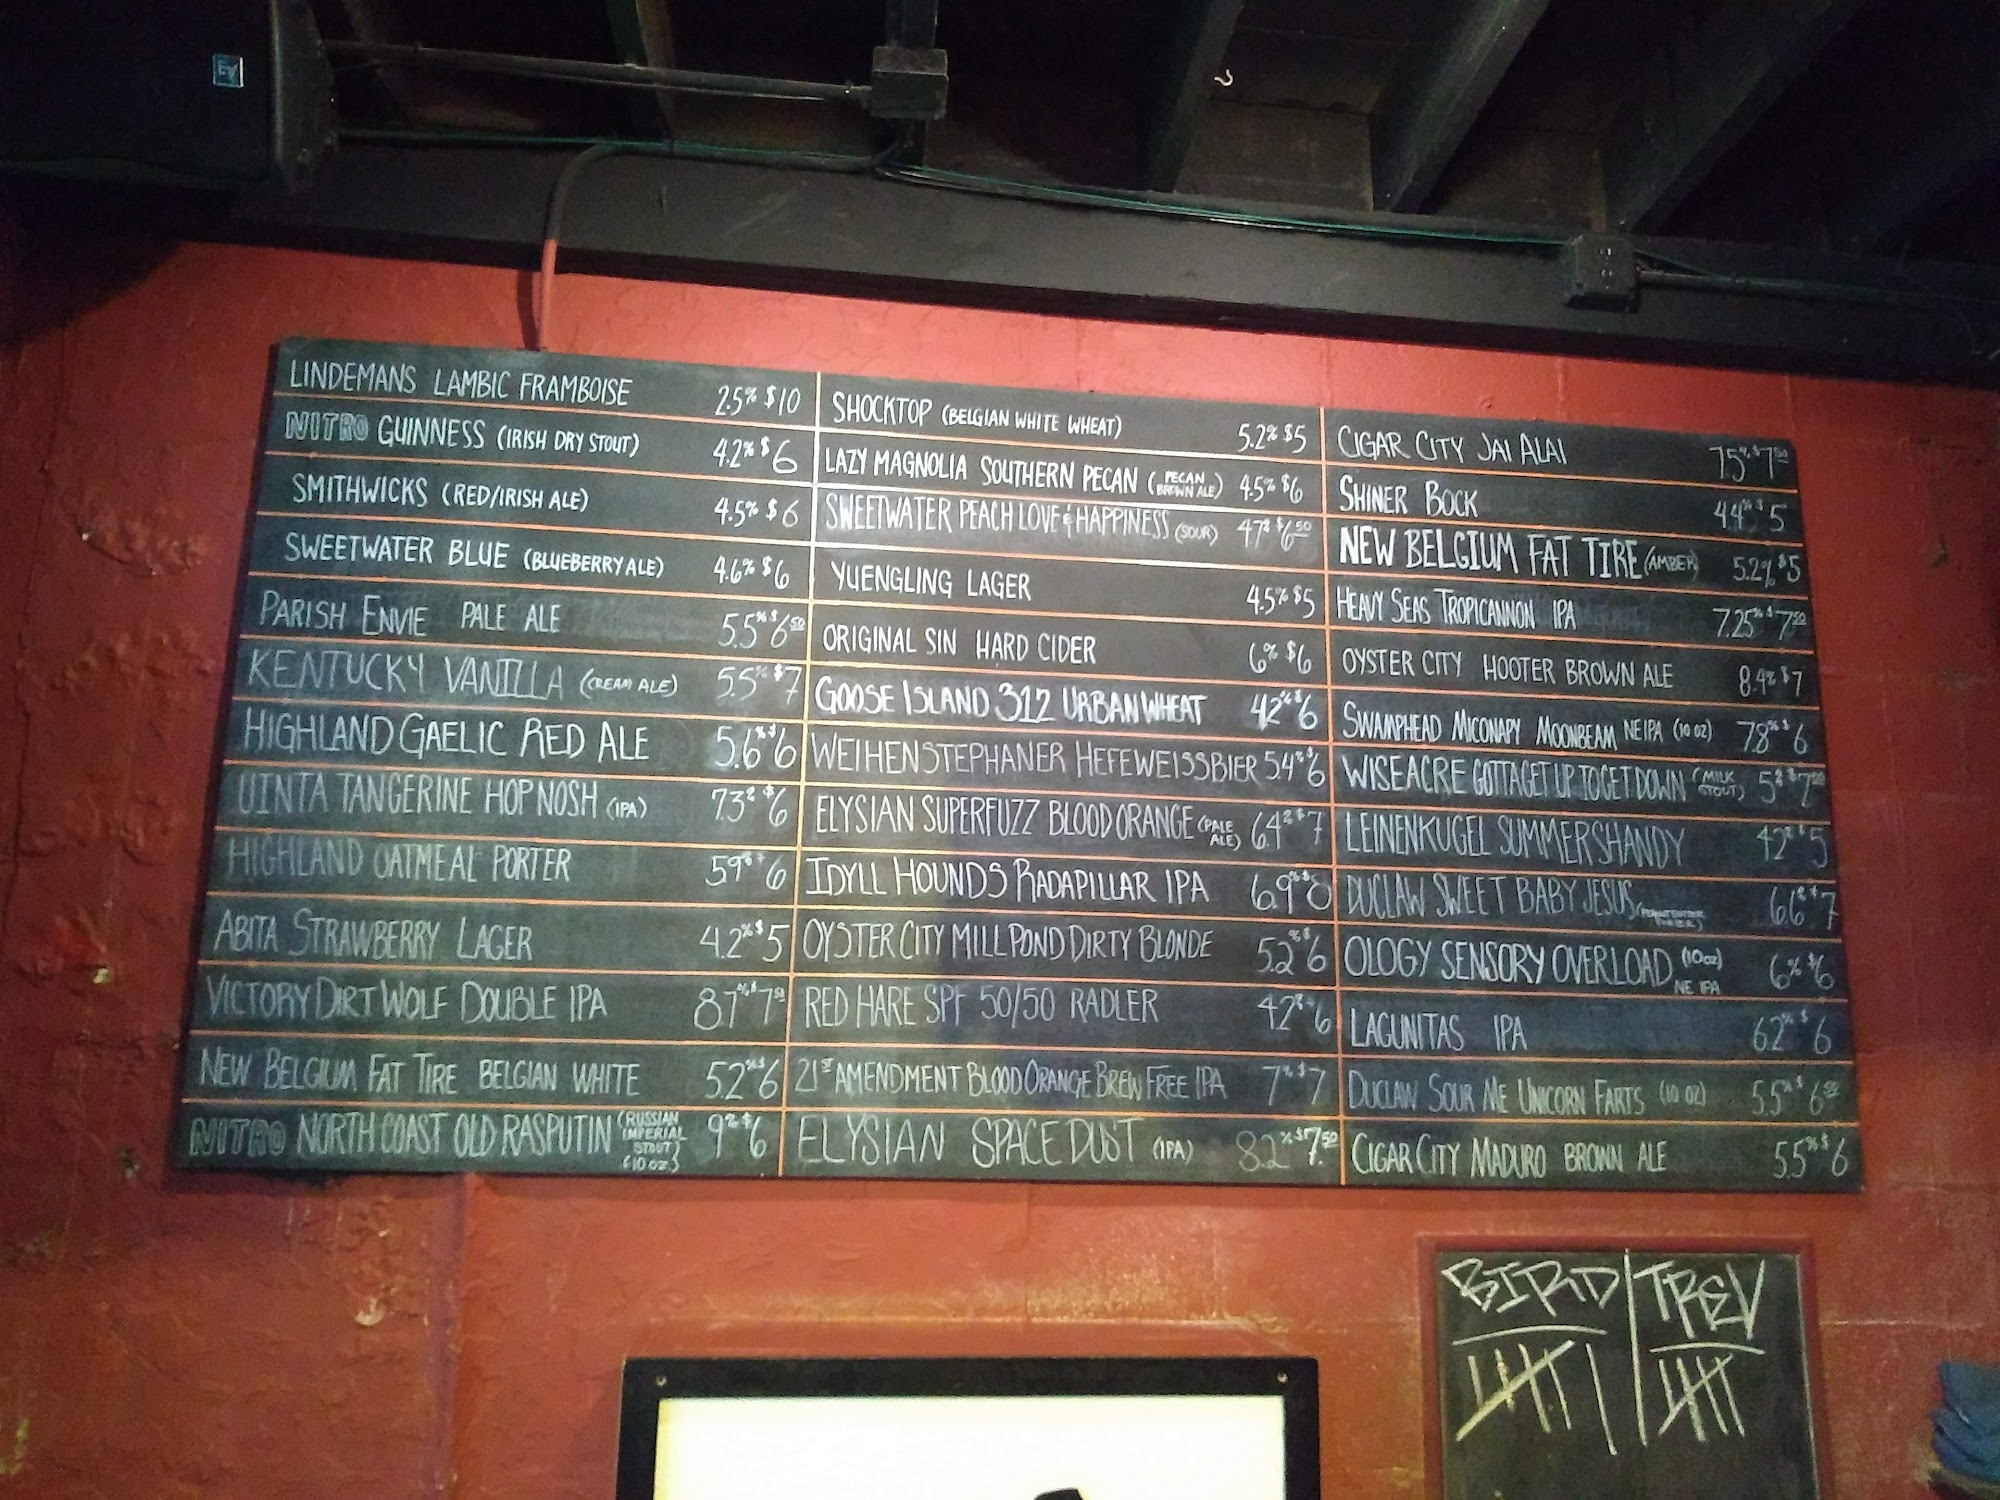 LINDEMANS LAMBIC FRAMBOISE 2.5% $10
NITRO GUINNESS (IRISH DRY STOUT) 4.2% $6
SMITHWICKS (RED/IRISH ALE) 4.5% $6
SWEETWATER BLUE (BLUEBERRY ALE) 4.6% $6
PARISH ENVIE PALE ALE 5.5% $6.50
KENTUCKY VANILLA (CREAM ALE) 5.5% $7
HIGHLAND GAELIC RED ALE 5.6% $6
UINTA TANGERINE HOP NOSH (IPA) 7.3% $6
HIGHLAND OATMEAL PORTER 5.9% $6
ABITA STRAWBERRY LAGER 4.2% $5
VICTORY DIRT WOLF DOUBLE IPA 8.7% $7.50
NEW BELGIUM FAT TIRE BELGIAN WHITE 5.2% $6
NITRO NORTH COAST OLD RASPUTIN (RUSSIAN IMPERIAL STOUT) (10 OZ.) 9% $6
SHOCKTOP (BELGIAN WHITE WHEAT) 5.2% $5
LAZY MAGNOLIA SOUTHERN PECAN (PECAN BROWN ALE) 4.5% $6
SWEETWATER PEACH LOVE & HAPPINESS (SOUR) 4.7% $6.50
YUENGLING LAGER 4.5% $5
ORIGINAL SIN HARD CIDER 6% $6
GOOSE ISLAND 312 URBAN WHEAT 4.2% $6
WEIHENSTEPHANER HEFEWEISSBIER 5.4% $6
ELYSIAN SUPERFUZZ BLOOD ORANGE (PALE ALE) 6.4% $7
IDYLL HOUNDS RADAPILLAR IPA 6.9% $8
OYSTER CITY MILL POND DIRTY BLONDE 5.2% $6
RED HARE SPF 50/50 RADLER 4.2% $6
21ST AMENDMENT BLOOD ORANGE BREW FREE IPA 7% $7
ELYSIAN SPACE DUST (IPA) 8.2% $7.50
CIGAR CITY JAI ALAI 7.5% $7.50
SHINER BOCK 4.4% $5
NEW BELGIUM FAT TIRE (AMBER) 5.2% $5
HEAVY SEAS TROPICANNON IPA 7.25% $7.50
OYSTER CITY HOOTER BROWN ALE 8.4% $7
SWAMPHEAD MICONAPY MOONBEAM NEIPA (10 OZ) 7.8% $6
WISEACRE GOTTA GET UP TO GET DOWN (MILK STOUT) 5% $7.50
LEINENKUGEL SUMMER SHANDY 4.2% $5
DUCLAW SWEET BABY JESUS (PEANUT BUTTER PORTER) 6.6% $7
OLOGY SENSORY OVERLOAD (10 OZ) NE IPA 6% $6
LAGUNITAS IPA 6.2% $6
DUCLAW SOUR ME UNICORN FARTS (10 OZ) 5.5% $6.50
CIGAR CITY MADURO BROWN ALE 5.5% $6
BIRD TREV